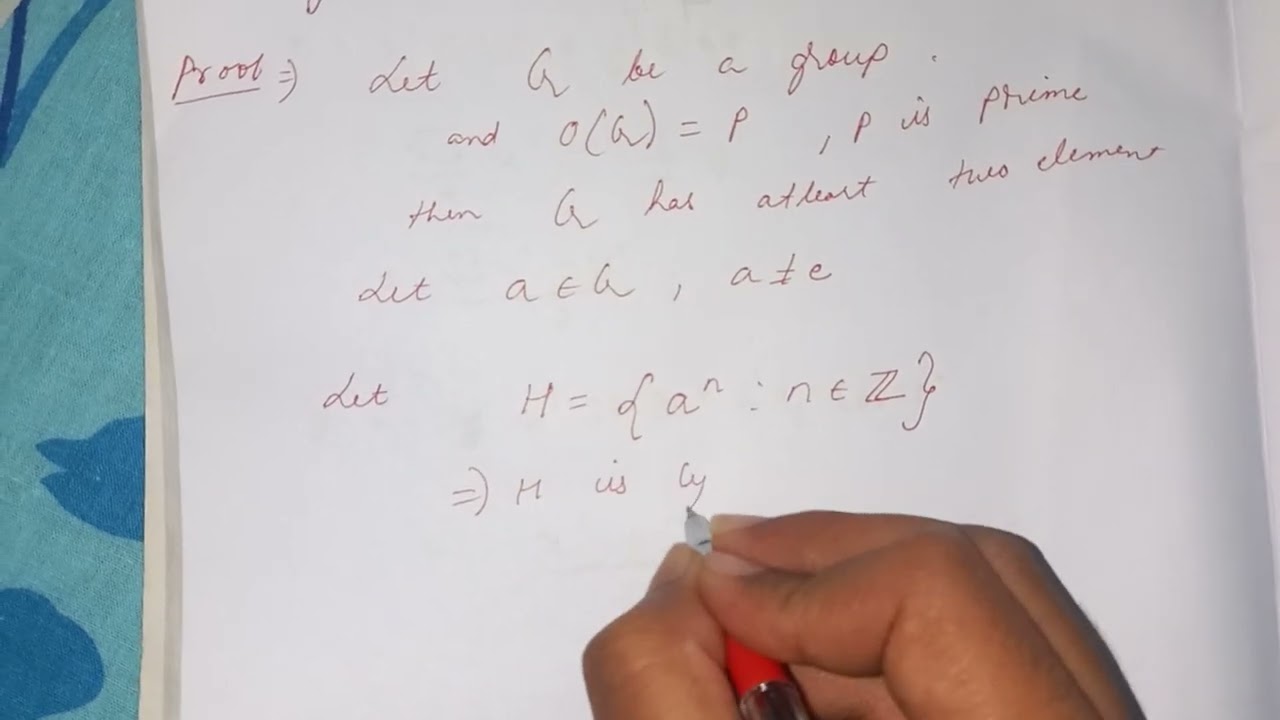 Proof ⇒ Let G be a group.
and O(G) = P , P is prime
then G has atleast two element
Let a ∈ G , a ≠ e
Let H = {aⁿ : n ∈ ℤ}
⇒ H is Cy